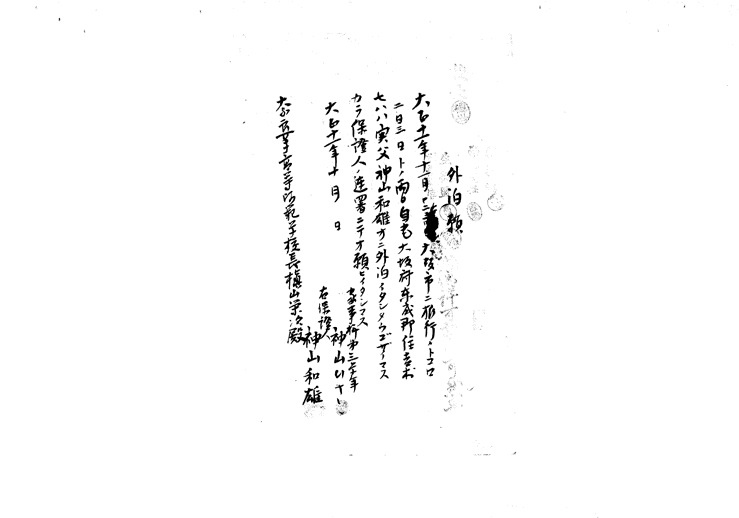 外泊願
大正十一年十一月十二 大坂市ニ旅行ノトコロ
二日三日ト両日自宅大坂府東成郡住吉村
七八八実父神山和雄方ニ外泊イタシタウゴザイマス
カラ保證人ノ連署ニテオ願ヒイタシマス
大正十一年十月 日
家事科第三学年
神山
右保證人
神山和雄
奈良女子高等師範学校長槇山栄次殿